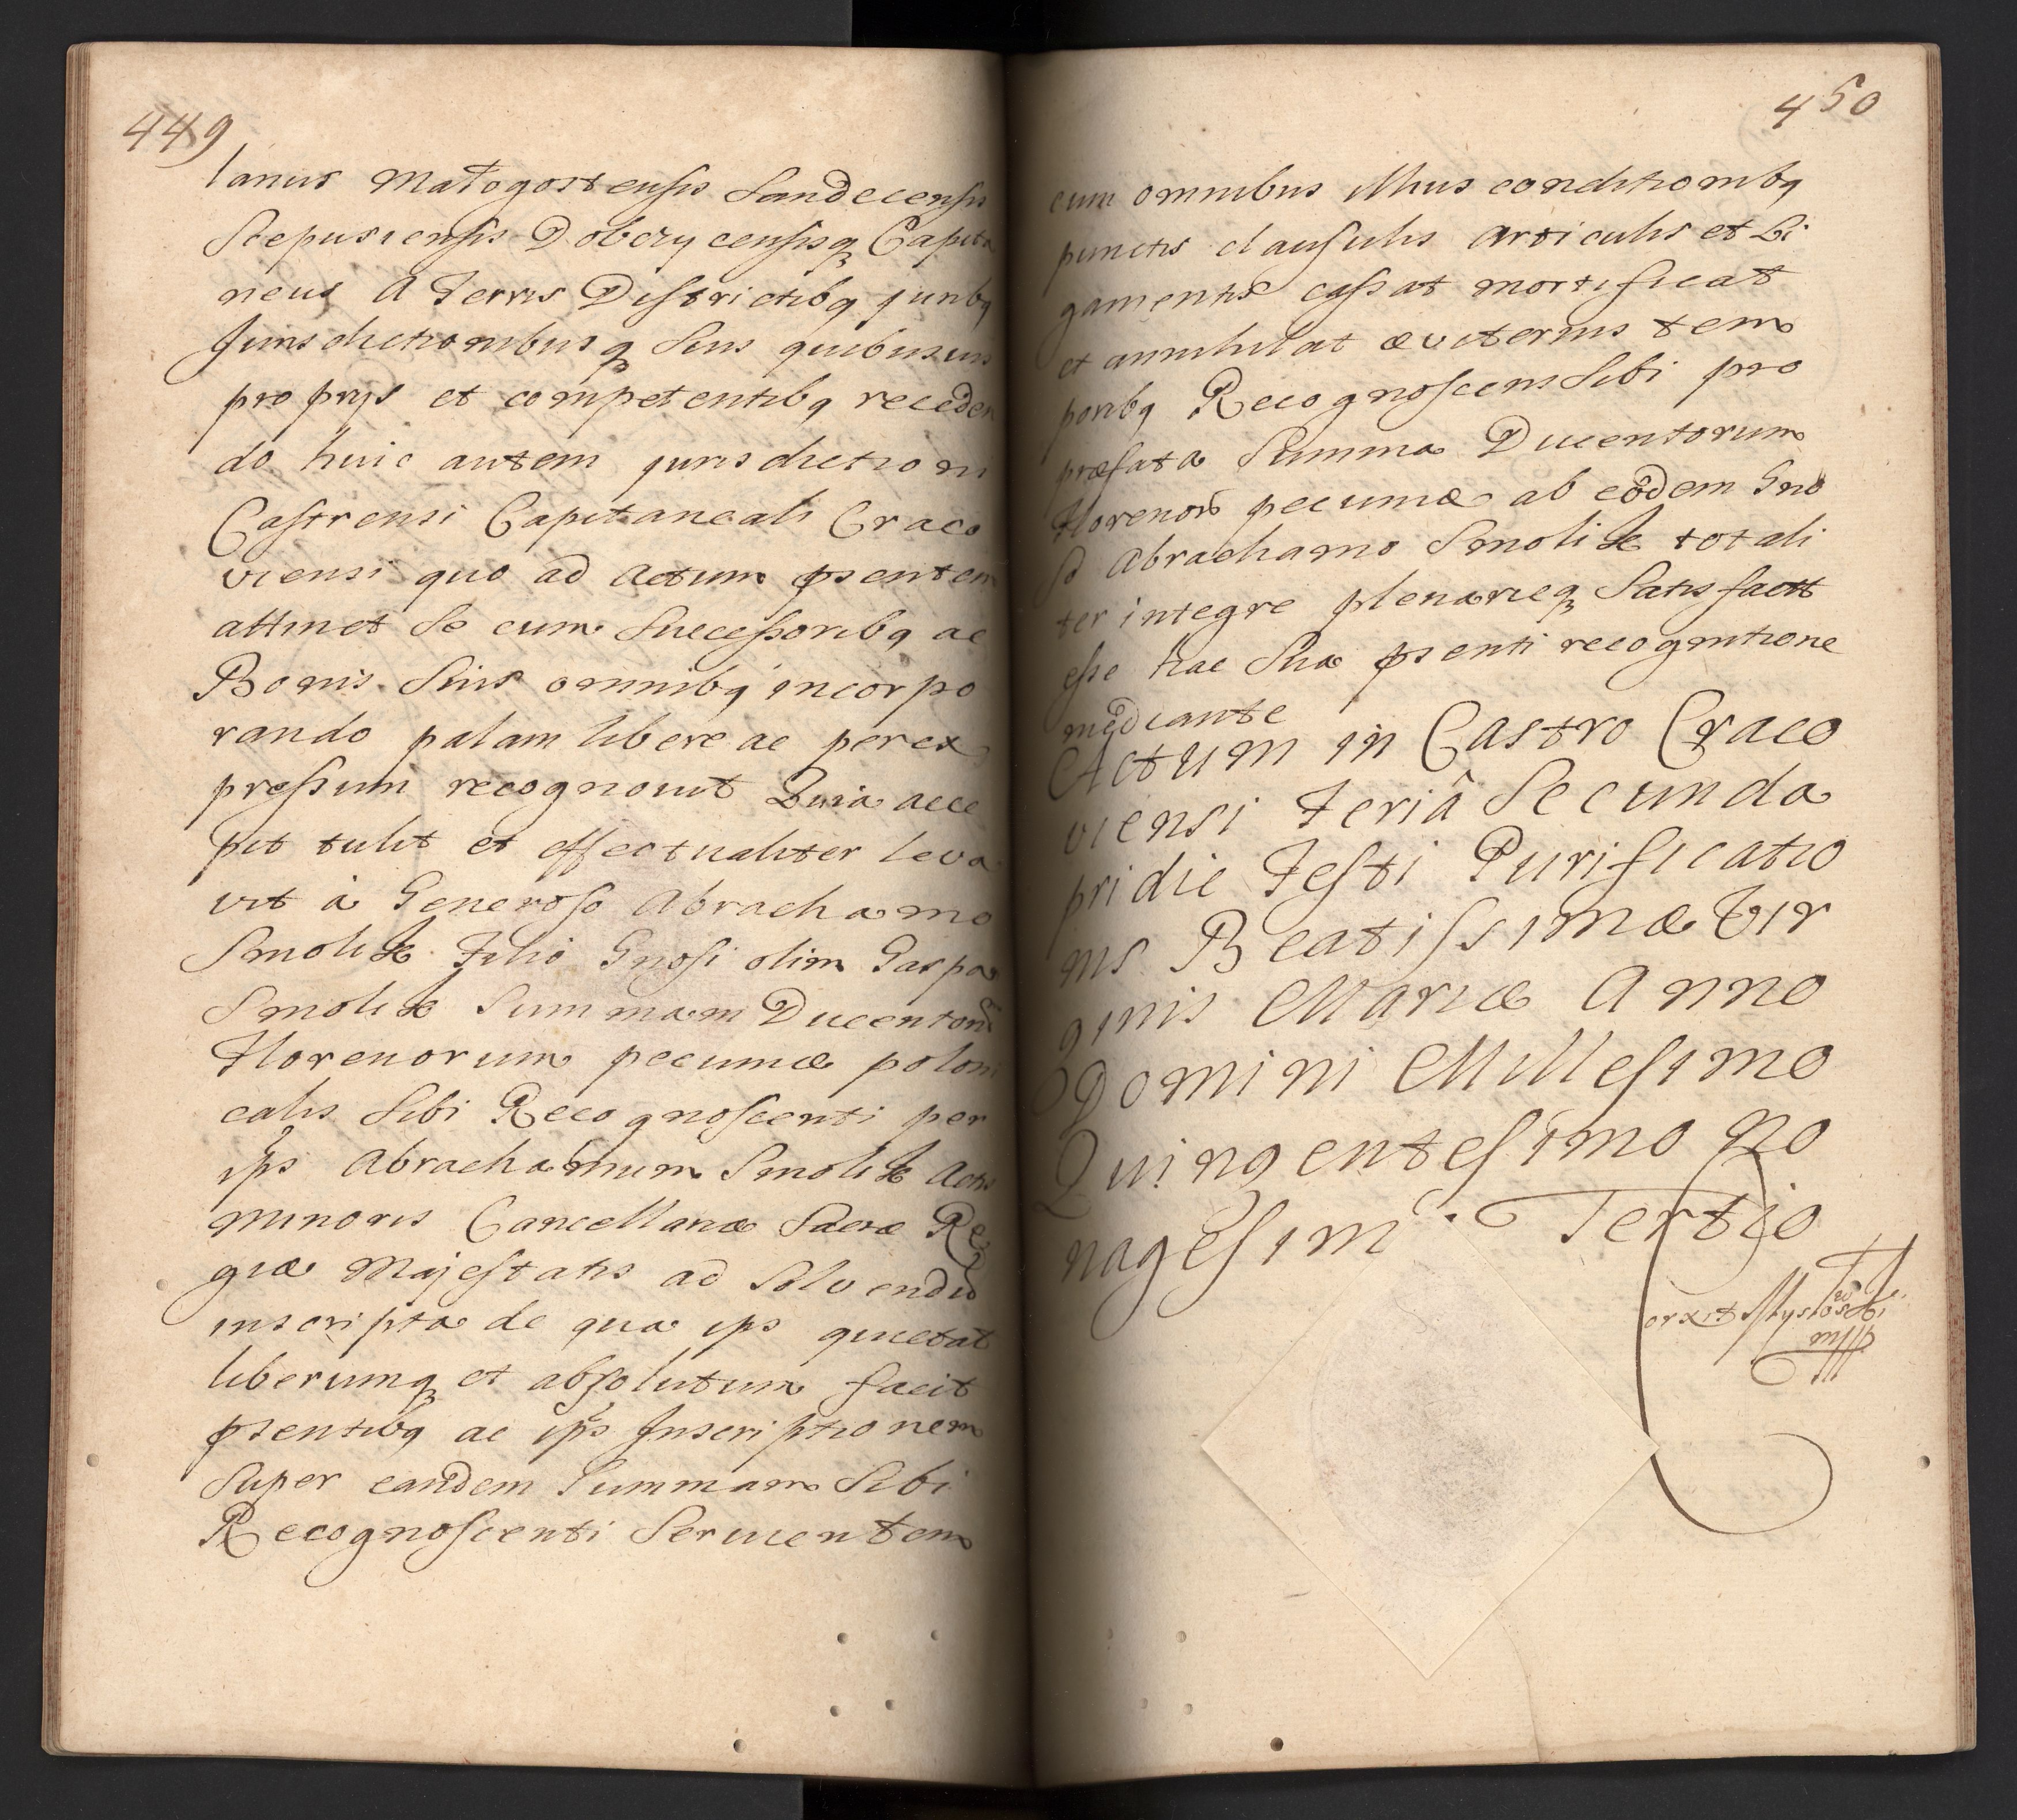 449
lanus Małogostensis Sandecensis
Scepusiensis Dobczycensisq Capita
neus A Terris Districtibq juribq
Jurisdictionibusq Suis quibusuis
proprys et competentibq receden
do huic autem jurisdictioni
Castrensi Capitaneali Craco
viensi quo ad Actum pſentem
attinet Se cum Successoribq ac
Bonis Suis omnibq incorpo
rando palam libere ac per ex
pressum recognovit Quia acce
pit tulit et effectualiter leva
vit à Generoso Abrachamo
Smolik Filio Gnosi olim Gaspa
Smolik Summam Ducentorū
Florenorum pecuniæ poloni
calis Sibi Recognoscenti per
ips Abrachamum Smolik Actis
Minoris Cancellariæ Sacræ Re
giæ Majestatis ad Solvendū
inscripta de qua ips quietat
liberumq et absolutum facit
pſentibq ac ips Inscriptionem
Super eandem Summam Sibi
Recognoscenti Servientem
450
cum omnibus illius conditionibq
punctis clausulis Articulis et Li
gamentis cassat mortificat
et annihilat æviternis tem
poribq Recognoscens Sibi pro
præfata Summa Ducentorum
Florenorū pecuniæ ab eodem Gno
so Abrachamo Smolik totali
ter integre plenarieq Satisfactū
esse hac Sua pſenti recognitione
mediante
Actum in Castro Craco
viensi Feriâ Secunda
pridie Festi Purificatio
nis Beatissimæ Vir
ginis Mariæ Anno
Domini Millesimo
Quingentesimo No
nagesimo Tertio